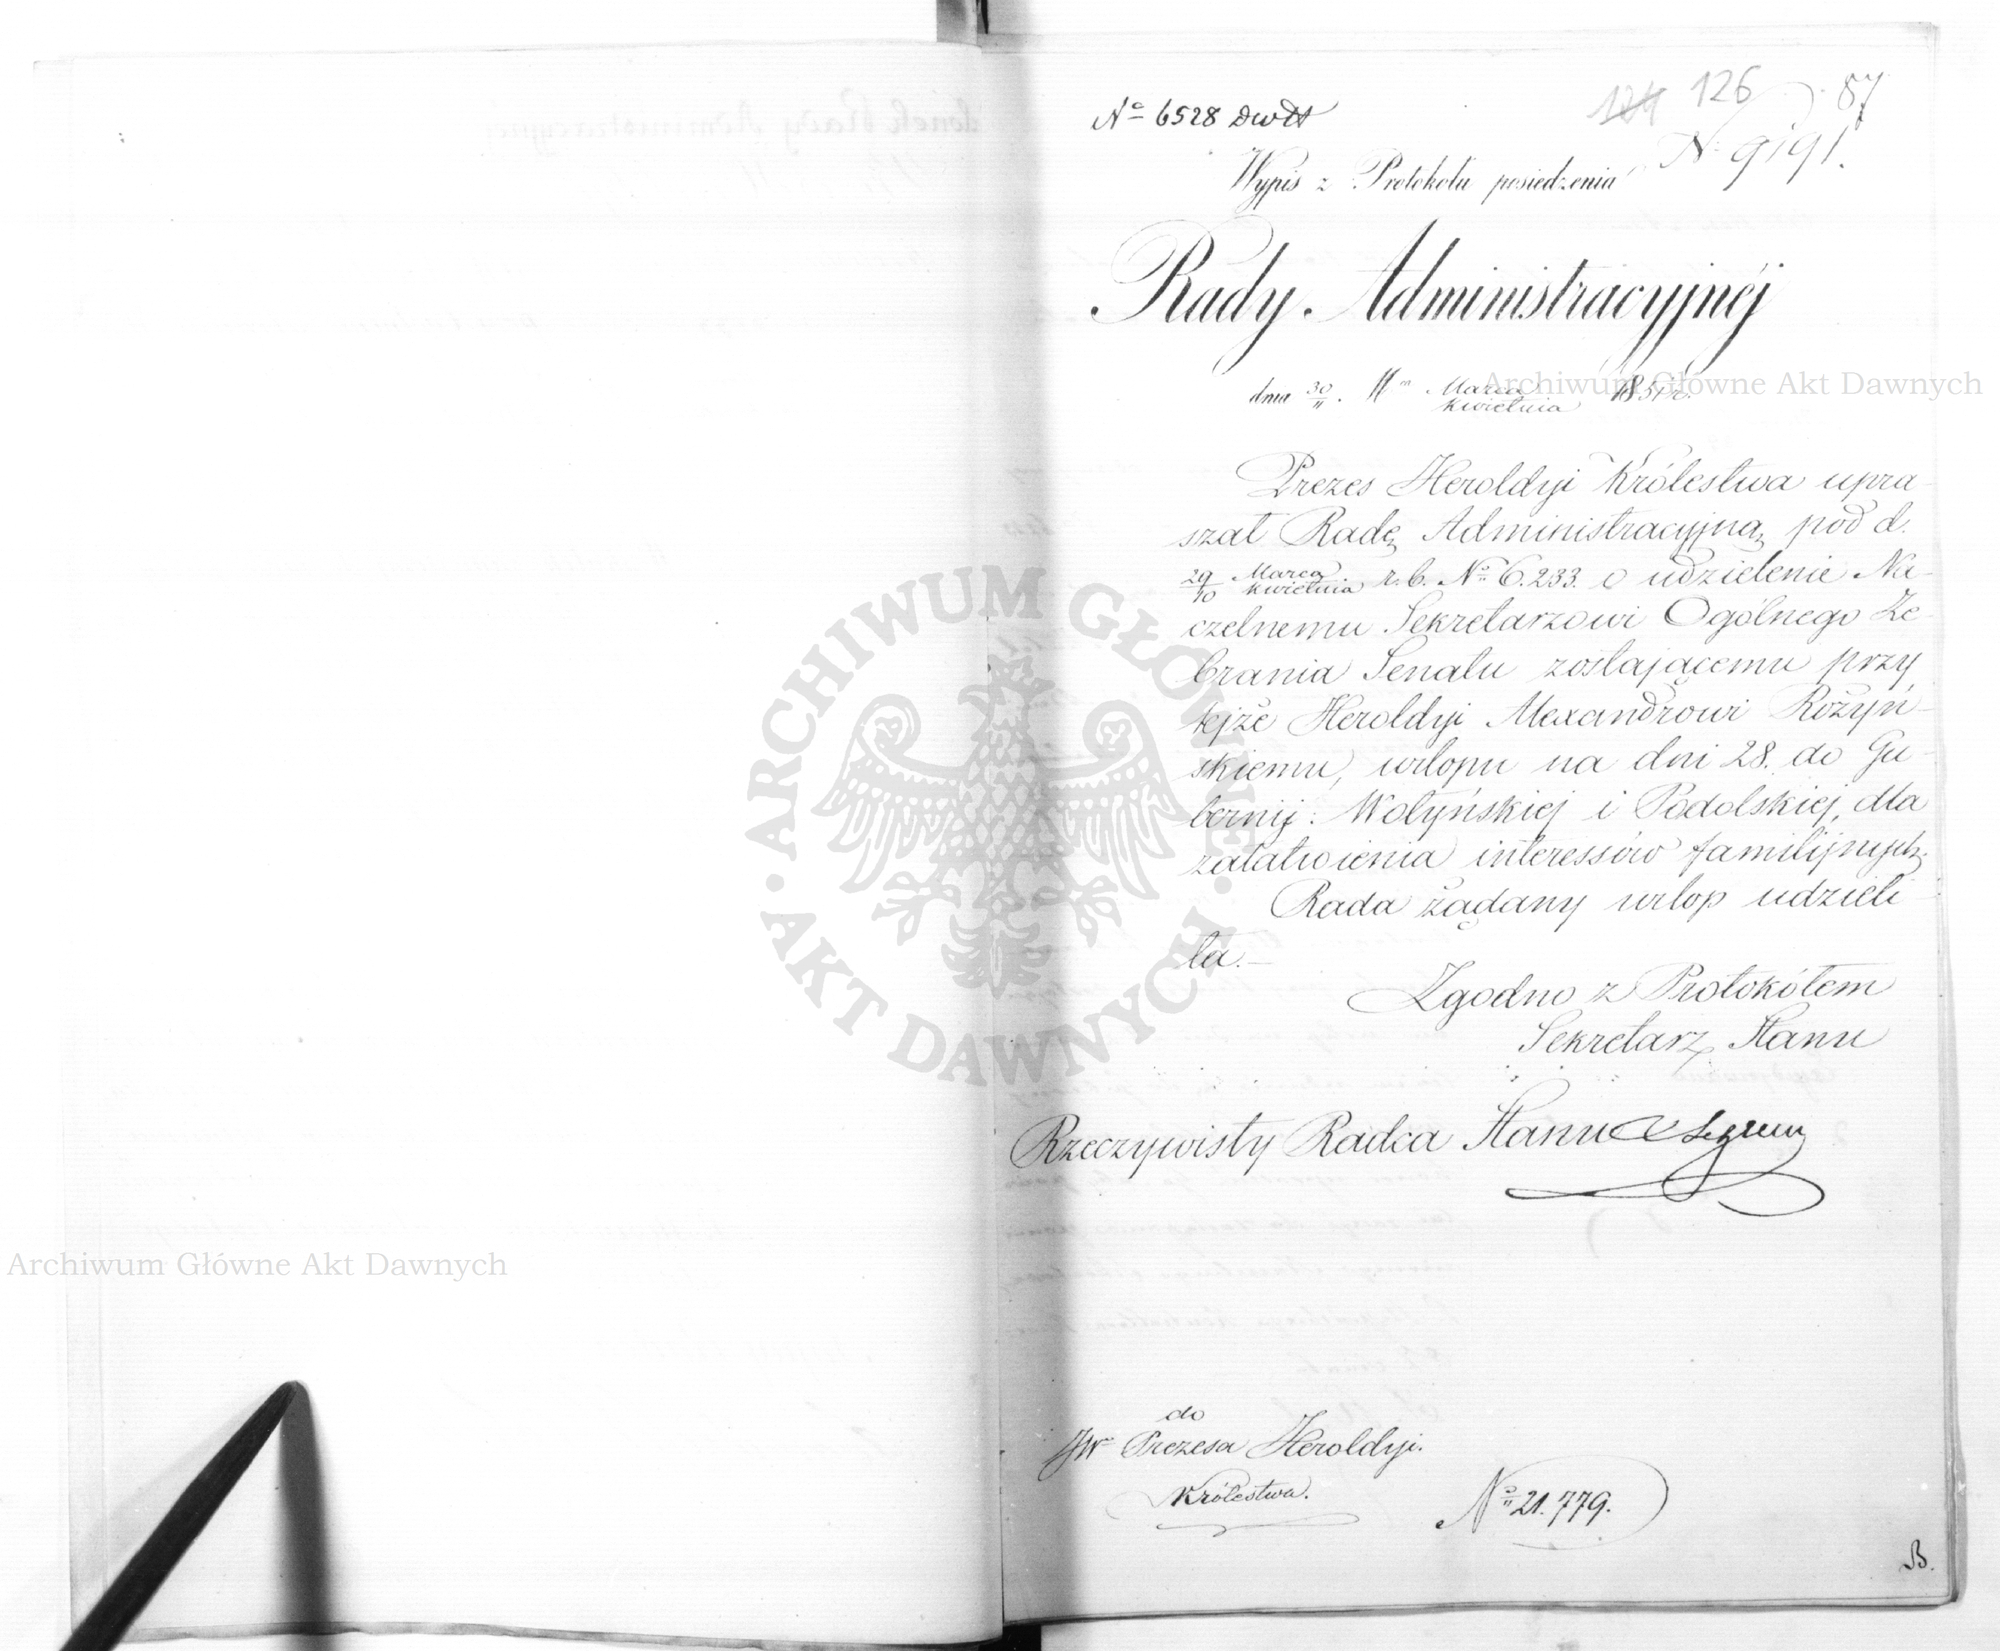 124 126 87
Nº 6528
N. 9191.
Wypis z Protokółu posiedzenia
Rady Administracyjnéj
dnia 30/11 Marca/Kwietnia 1851 r.
Prezes Heroldyi Królestwa upra-
szał Radę Administracyjną pod d.
29/10 Marca/Kwietnia r. b. Nº 6.233. o udzielenie Na-
czelnemu Sekretarzowi Ogólnego Ze-
brania Senatu zostającemu przy
tejże Heroldyi Alexandrowi Rożyń-
skiemu, urlopu na dni 28. do Gu-
bernij: Wołyńskiej i Podolskiej, dla
załatwienia interessów familijnych.
Rada żądany urlop udzieli-
ła.—
Zgodno z Protokółem
Sekretarz Stanu
Rzeczywisty Radca Stanu
do
JW Prezesa Heroldyi.
Królestwa.
Nº 21.779.
B.
Archiwum Główne Akt Dawnych
Archiwum Główne Akt Dawnych
ARCHIWUM GŁÓWNE
AKT DAWNYCH